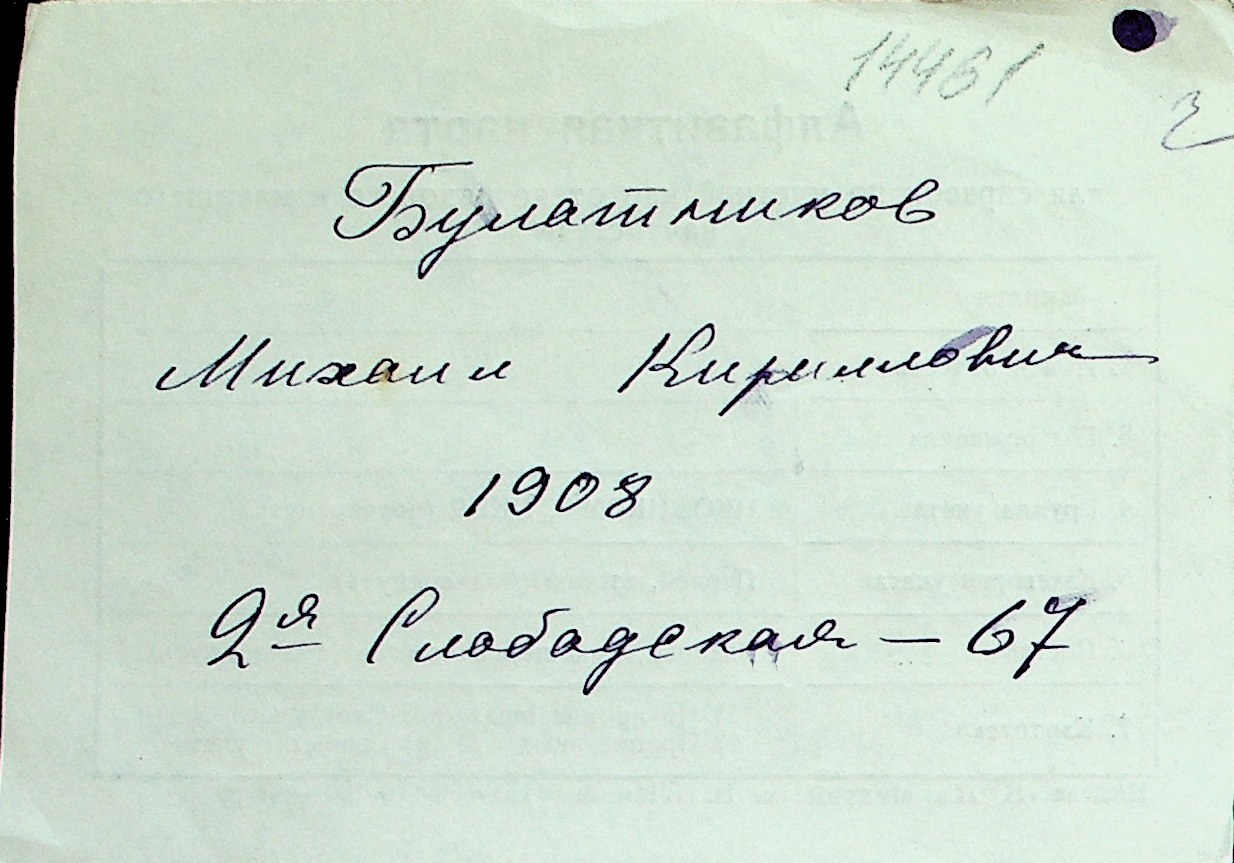 14461
Булатников
Михаил Кириллович
1908
2я Слободская – 67